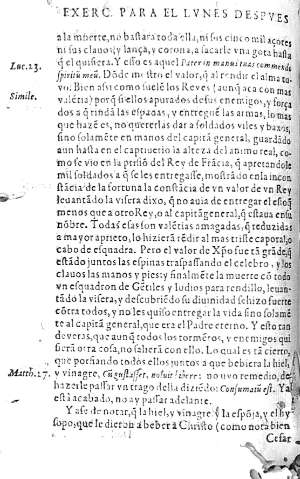 EXERC. PARA EL LVNES DESPVES
a la muerte, no bastara toda ella, ni sus cinco mil açotes
ni sus clauos, y lança, y corona, a sacarle vna gota hasta
Luc.23.
q̃ el quisiera. Y esso es aquel Pater in manus tuas commendo
spiritũ meũ. Dõde mostro el valor, q̃ al rendir el alma tu-
Simile.
vo. Bien assi como suelē los Reyes (aunq̃ aca con mas
valētia) porq̃ si ellos apurados de sus enemigos, y força
dos a q̃ rindā las espadas, y entreguē las armas, lo mas
que hazē es, no querer las dar a soldados viles y baxos,
sino solamēte en manos del capitā general, guardādo
aun hasta en el captiuerio la alteza del animo real, co-
mo se vio en la prisiō del Rey de Frācia, q̃ apretandole
mil soldados a q̃ se les entregasse, mostrādo en la incon
stācia de la fortuna la constācia de vn valor de vn Rey
leuantādo la visera dixo, q̃ no auia de entregar el esto
menos que a otro Rey, o al capitā general, q̃ estaua en su
nōbre. Todas essas son valētias amagadas, q̃ reduzidas
a mayor aprieto, lo hizierā rēdir al mas triste caporal, o
cabo de esquadra. Pero el valor de Xp̃o fue tā grāde, q̃
estādo juntos las espinas traspassando el celebro, y los
clauos las manos y pies; y finalmēte la muerte cō todo
vn esquadron de Gētiles y Iudios para rendillo, leuan-
tādo la visera, y descubriēdo su diuinidad se hizo fuerte
cōtra todos, y no les quiso entregar la vida sino solamē
te al capitā general, que era el Padre eterno. Y esto tan
de veras, que aunq̃ todos los tormētos, y enemigos qui
sierā otra cosa, no salierā con ello. Lo qual es tā cierto,
que porfiando todos ellos juntos a que bebiera la hiel,
Matth.27.
y vinagre, cũ gustasset, noluit bibere: no uvo remedio, de
hazerle passar vn trago della diziēdo: Consumatũ est. Ya
està acabado, no ay passar adelante.
Y asse de notar, q̃ la hiel, y vinagre, y la espōja, y el hy
sopo, que le dieron a beber a Christo (como nota bien
Cesar